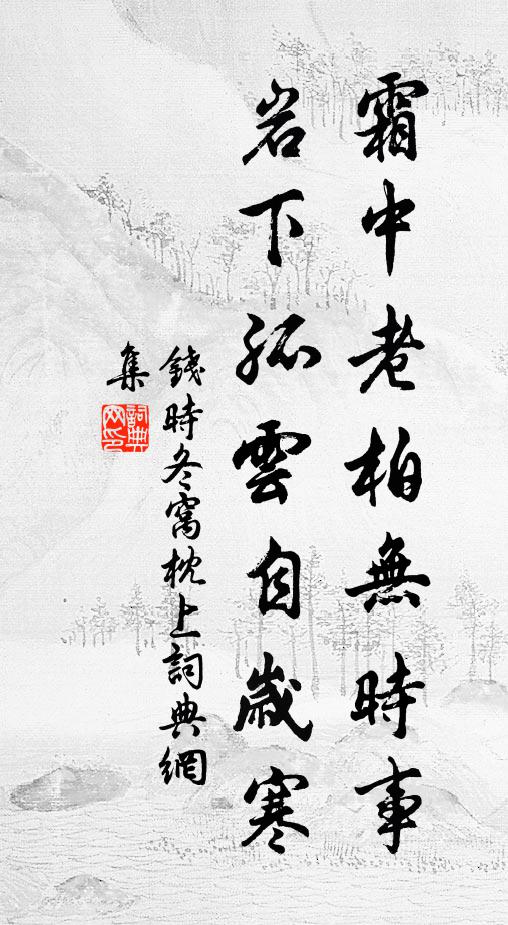 霜中老柏無時事
岩下孤雲自歲寒
錢時冬窩枕上詞典網
集
詞典
网印